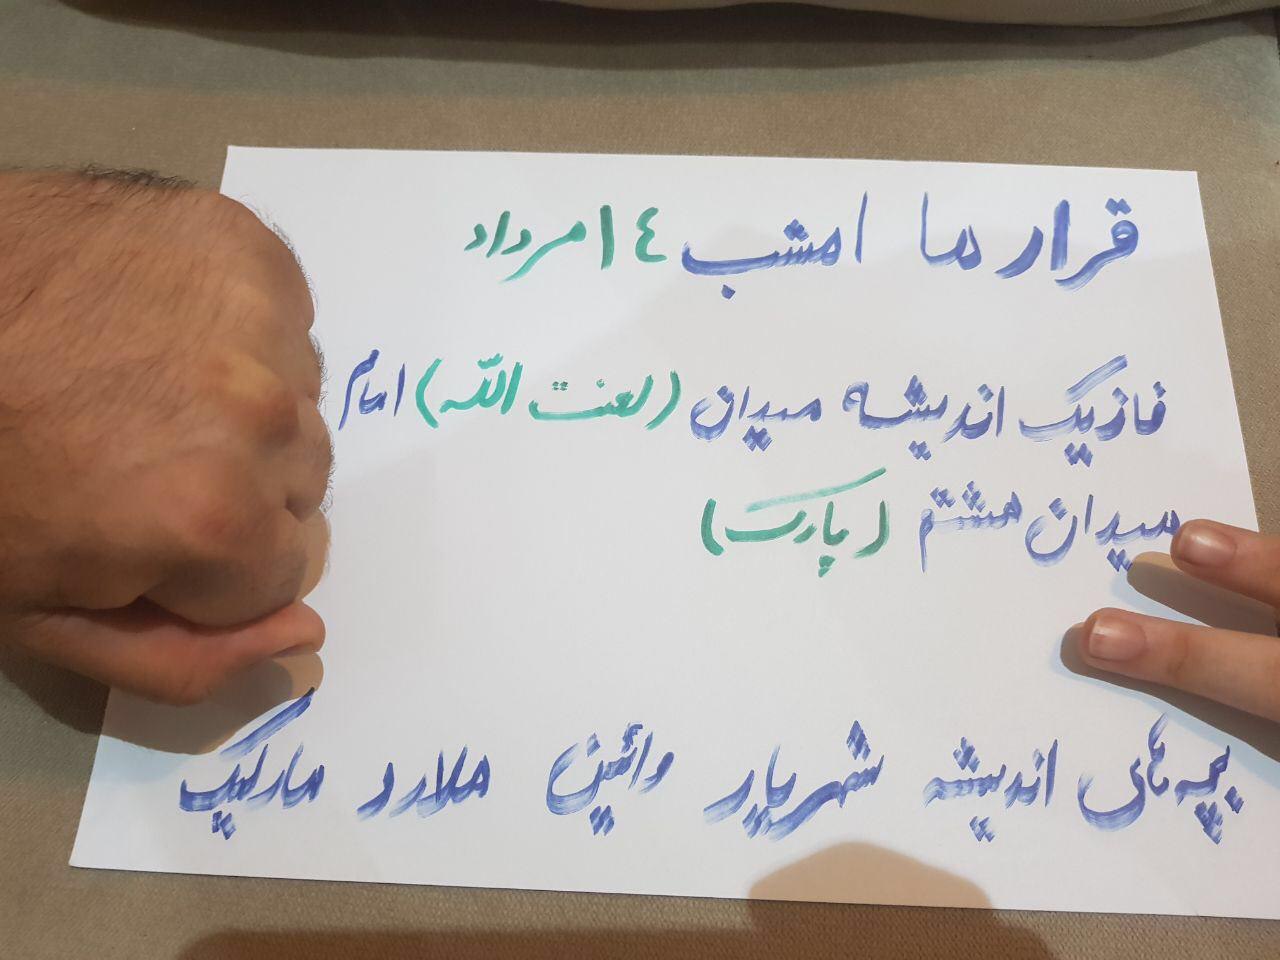 قرار ما امشب ۱٤ مرداد
فازیک اندیشه میدان (لعنت الله) امام
میدان هشتم (پارک)
بچه های اندیشه شهریار وائین ملارد مارلیک